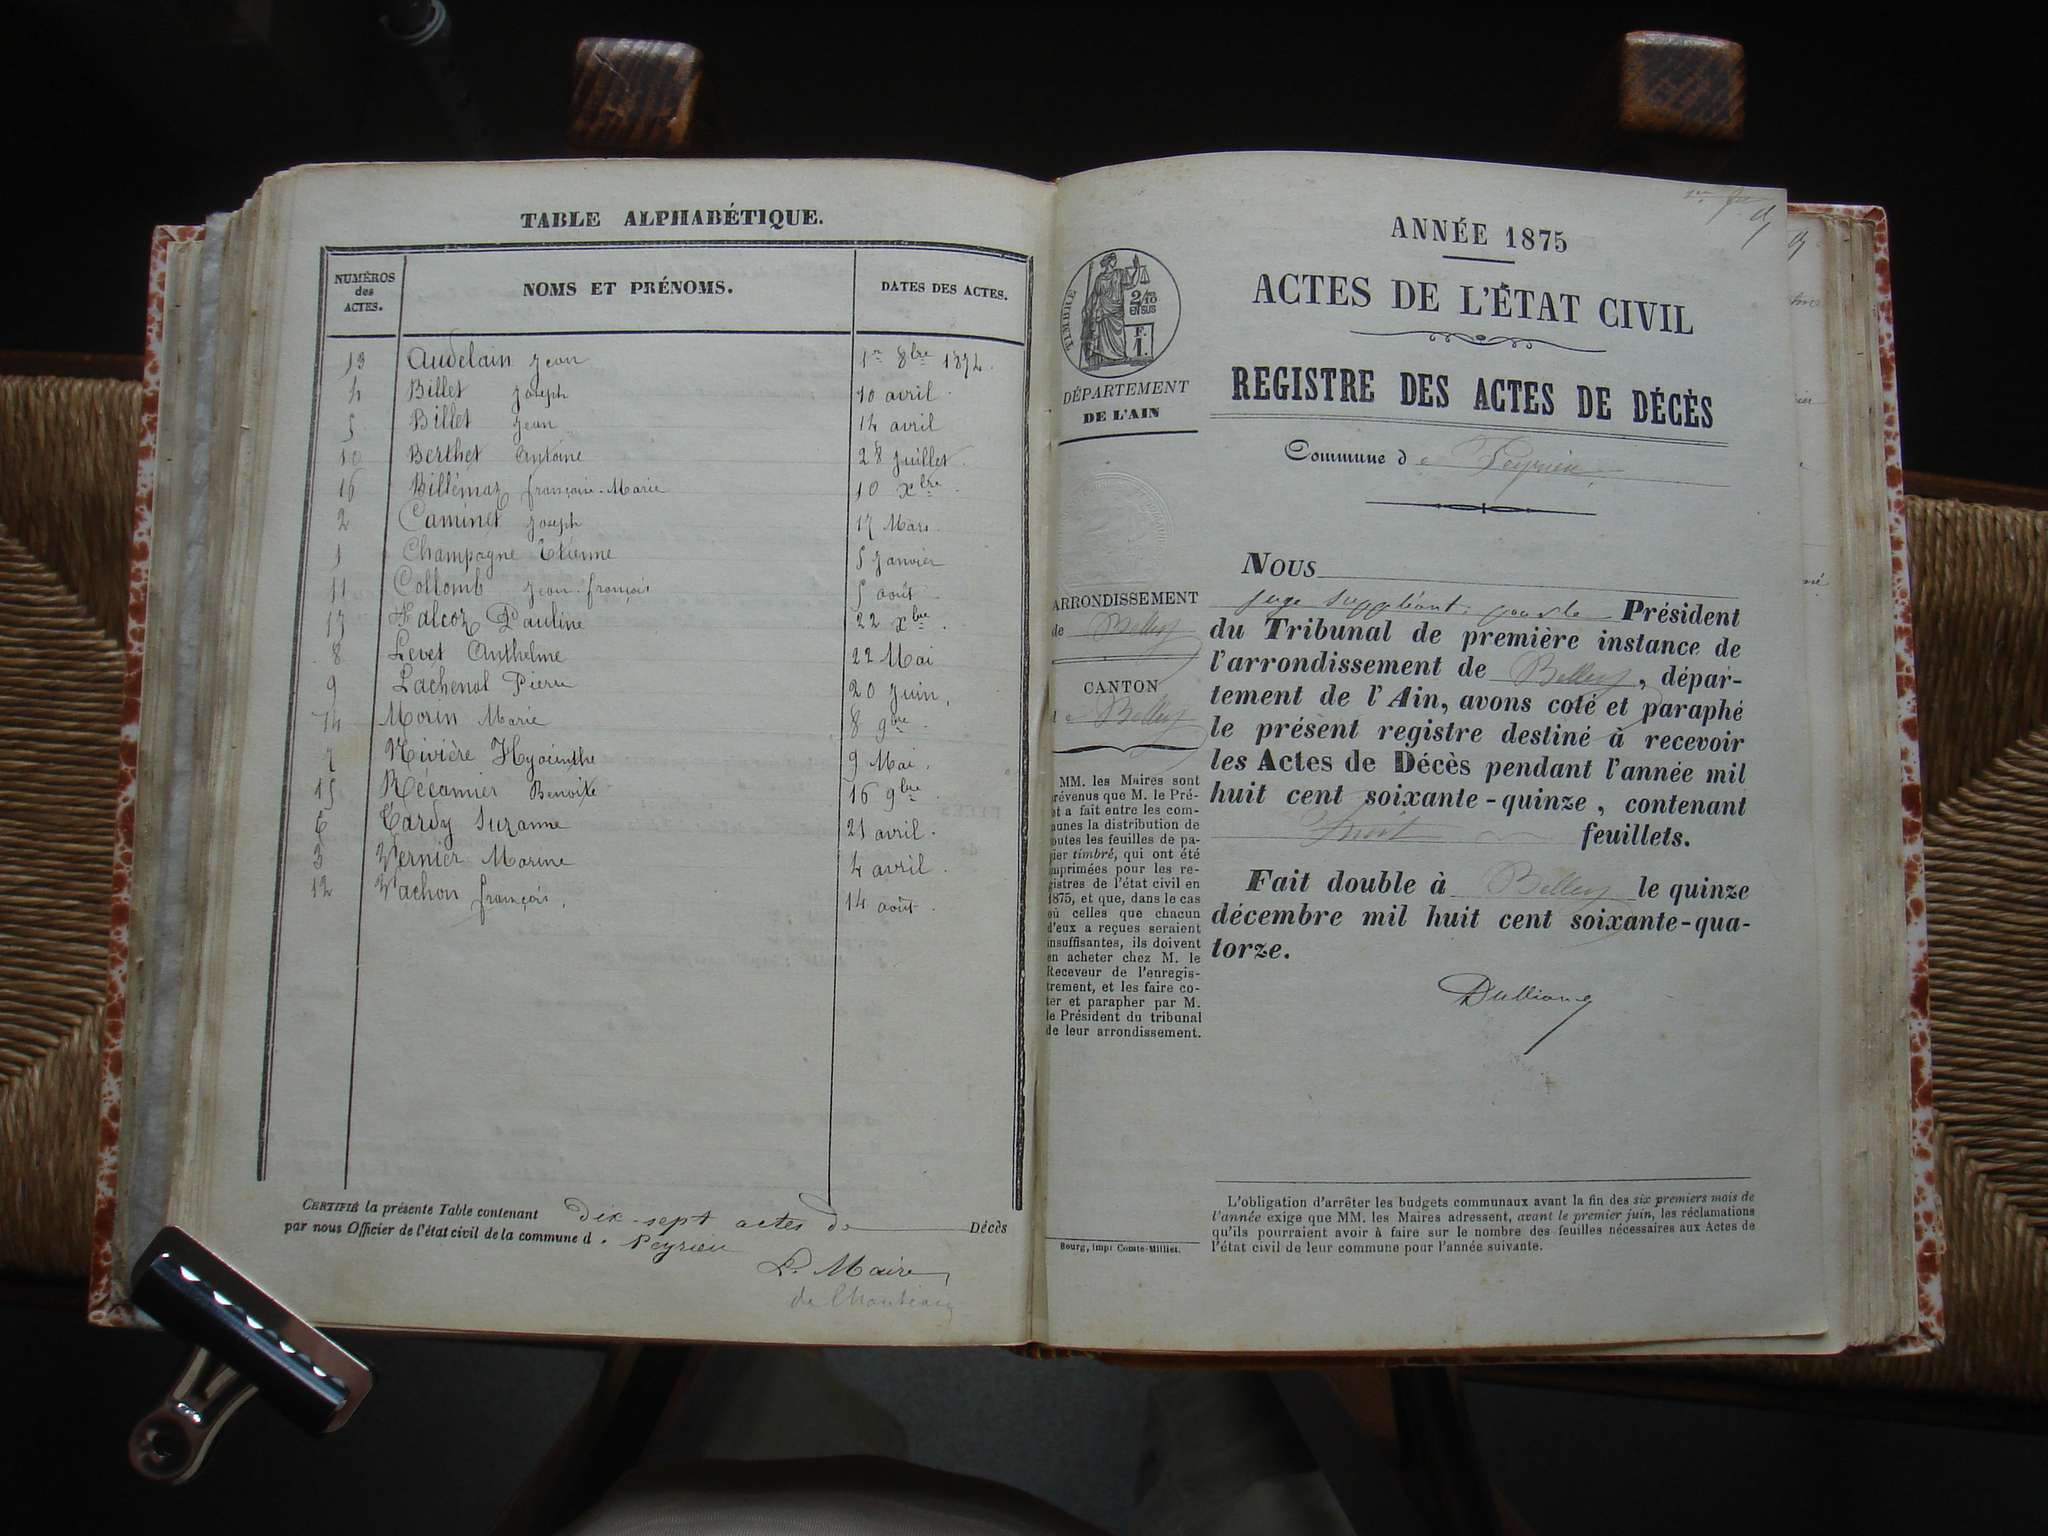 TABLE ALPHABÉTIQUE.
NUMÉROS des ACTES.
NOMS ET PRÉNOMS.
DATES DES ACTES.
13 Audelain Jean 1er 8bre 1874.
4 Billet Joseph 10 avril
5 Billet Jean 14 avril
10 Berthet Antoine 28 Juillet.
16 Billémaz françoise-Marie 10 Xbre.
2 Caminet Joseph 17 Mars
1 Champagne Etienne 5 Janvier
11 Collomb Jean-françois 5 août
17 Falcoz Pauline 22 Xbre.
8 Levet Anthelme 22 Mai
9 Lachenal Pierre 20 Juin.
14 Morin Marie 8 9bre
7 Rivière Hyacinthe 9 Mai.
15 Récamier Benoite 16 9bre
6 Tardy Suzanne 21 avril.
3 Vernier Marine 4 avril.
12 Vachon françois. 14 août.
CERTIFIÉ la présente Table contenant Dix-sept actes de Décès
par nous Officier de l'état civil de la commune d. Peyrieu
Le Maire
ANNÉE 1875
ACTES DE L'ÉTAT CIVIL
REGISTRE DES ACTES DE DÉCÈS
Commune de Peyrieu
TIMBRE
2/10 EN SUS
F. 1.
DÉPARTEMENT
DE L'AIN
ARRONDISSEMENT
de Belley
CANTON
de Belley
MM. les Maires sont
prévenus que M. le Pré-
et a fait entre les com-
munes la distribution de
toutes les feuilles de pa-
pier timbré, qui ont été
imprimées pour les re-
gistres de l'état civil en
1875, et que, dans le cas
où celles que chacun
d'eux a reçues seraient
insuffisantes, ils doivent
en acheter chez M. le
Receveur de l'enregis-
trement, et les faire co-
ter et parapher par M.
le Président du tribunal
de leur arrondissement.
Bourg, impr Comte-Milliet.
NOUS
juge suppléant pour le Président
du Tribunal de première instance de
l'arrondissement de Belley, dépar-
tement de l'Ain, avons coté et paraphé
le présent registre destiné à recevoir
les Actes de Décès pendant l'année mil
huit cent soixante-quinze, contenant
huit feuillets.
Fait double à Belley le quinze
décembre mil huit cent soixante-qua-
torze.
L'obligation d'arrêter les budgets communaux avant la fin des six premiers mois de
l'année exige que MM. les Maires adressent, avant le premier juin, les réclamations
qu'ils pourraient avoir à faire sur le nombre des feuilles nécessaires aux Actes de
l'état civil de leur commune pour l'année suivante.